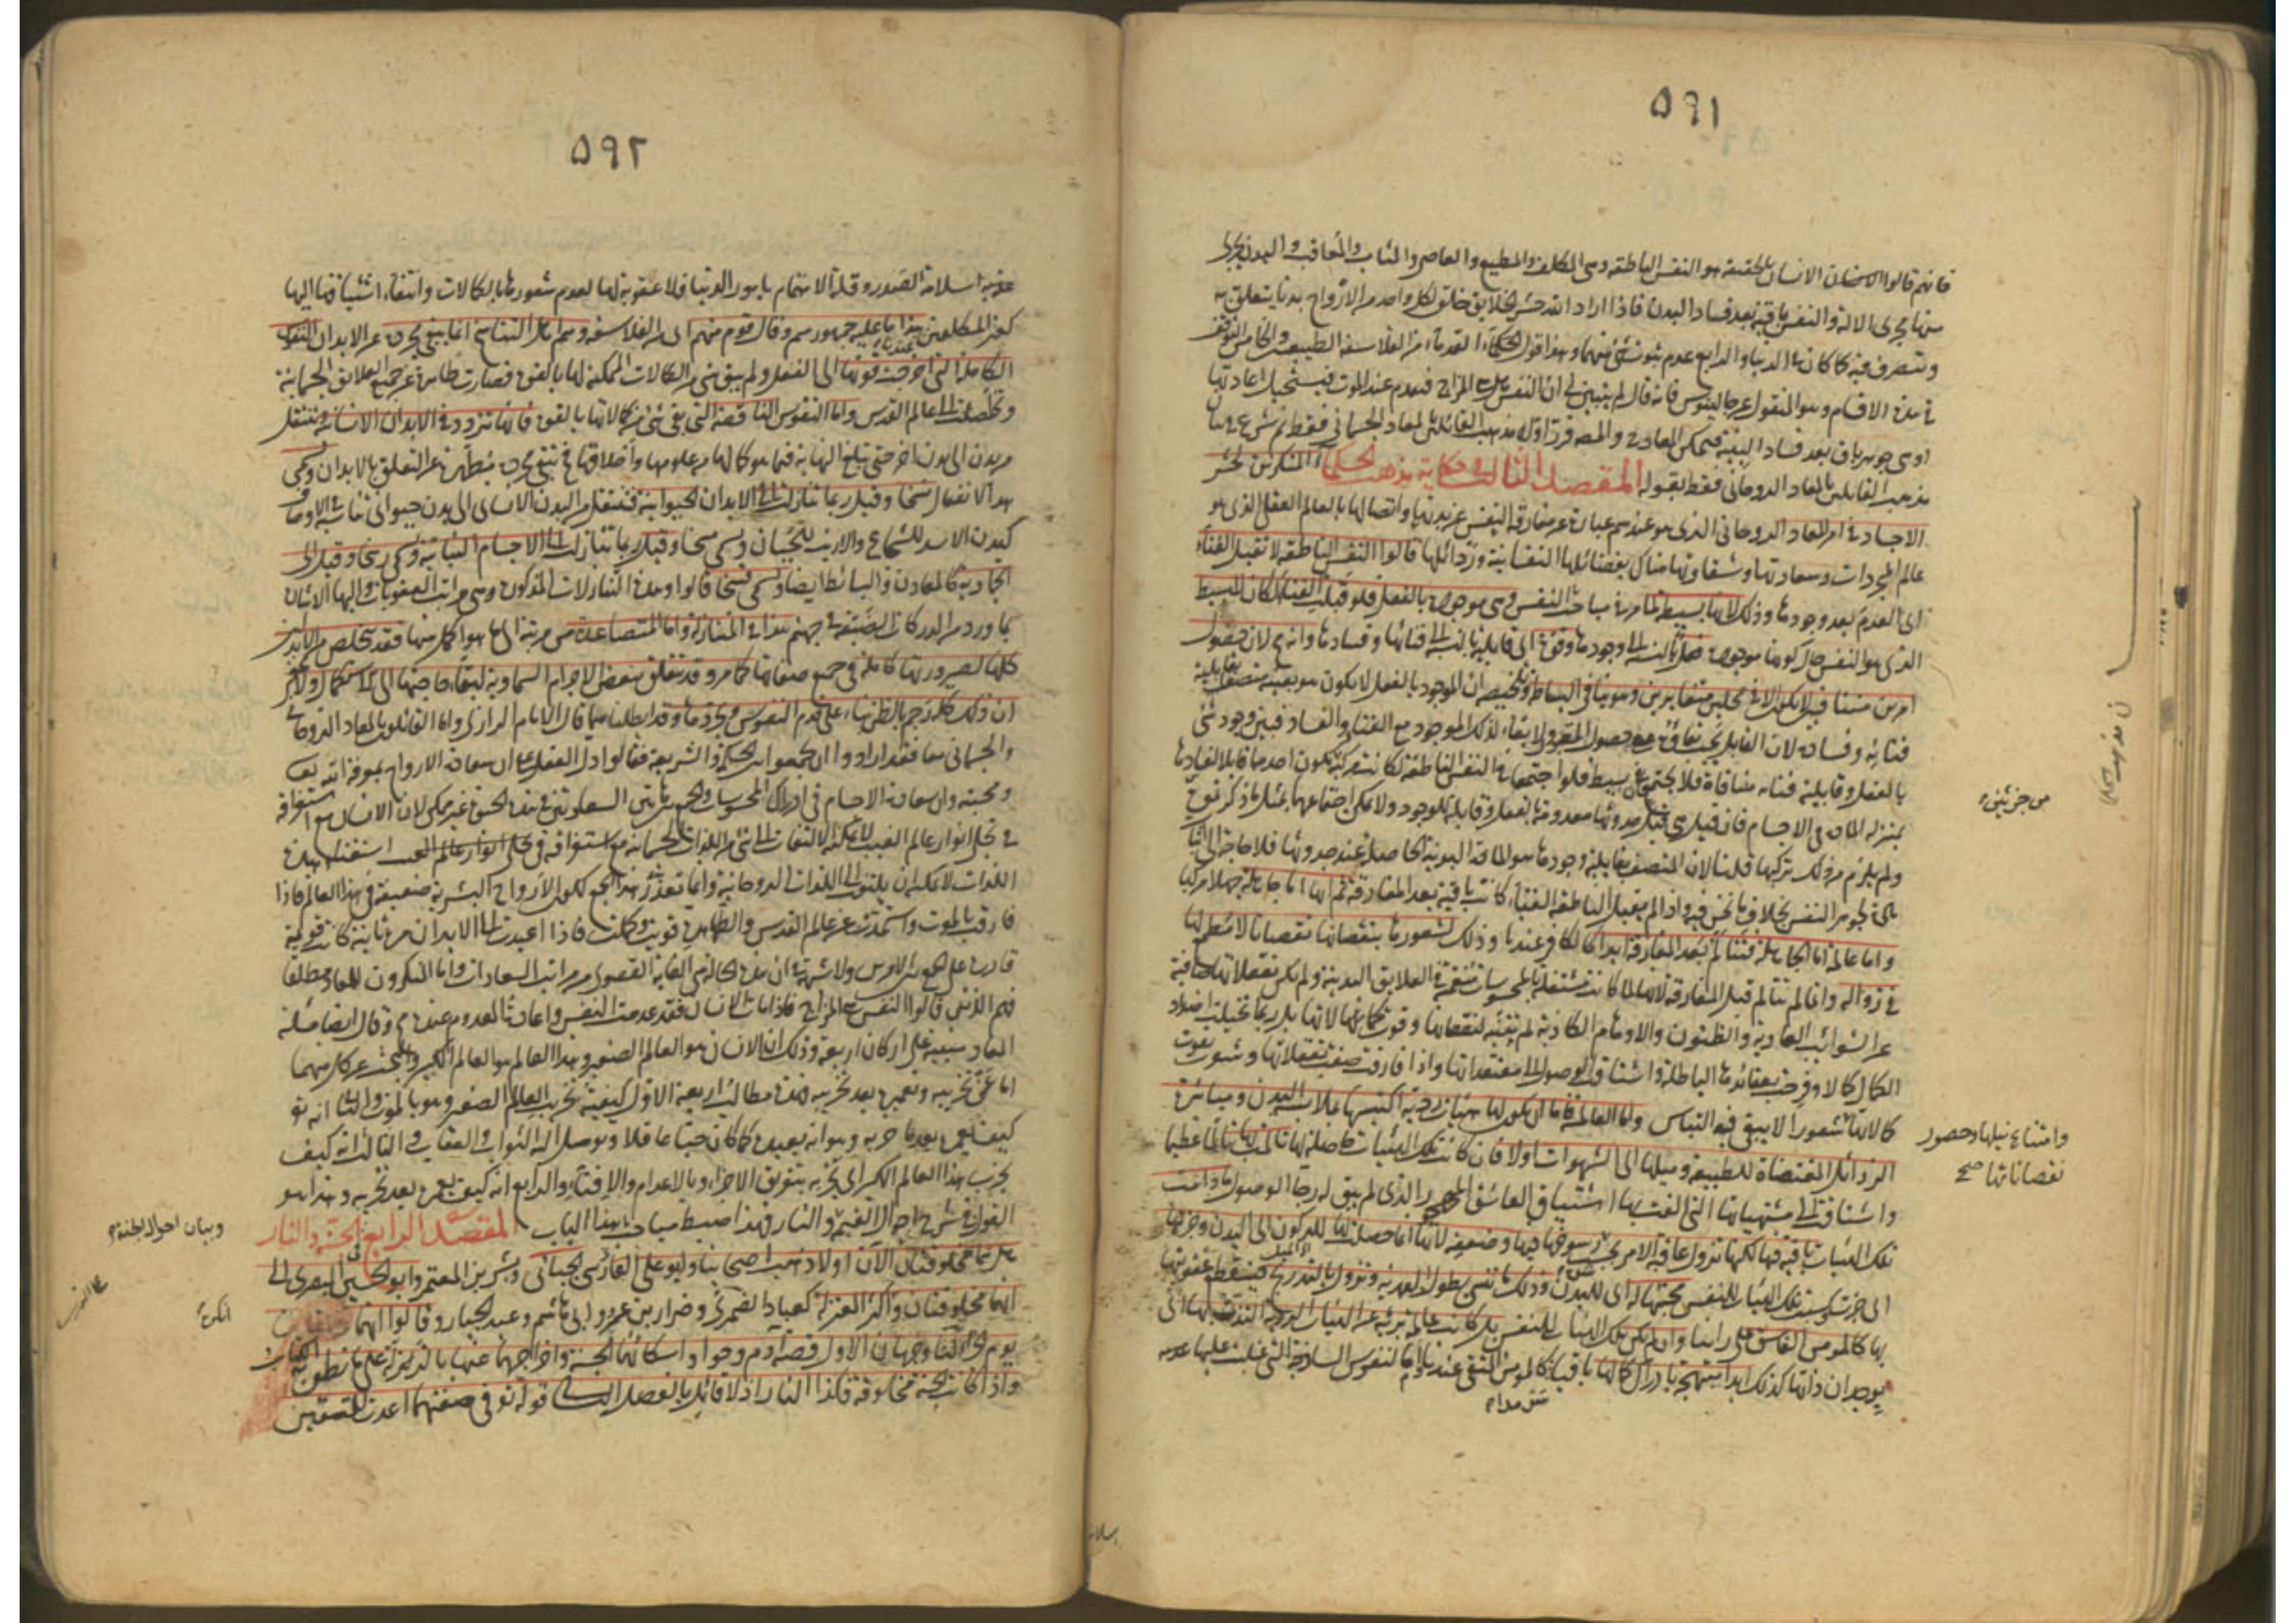 ٥٩١
فانهم قالوا الانسان بالحقيقة هو النفس الناطقة وهى المكلف والمطيع والعاصى والمثاب والمعاقب والبدن يجرى
منها مجرى الالة والنفس باقية بعد فساد البدن فاذا اراد الله حشر الخلايق خلق لكل واحد من الارواح بدنا يتعلق به
ويتصرف فيه كما كان فى الدنيا والرابع عدم ثبوت شئ منهما وهذا قول القدماء من الفلاسفة الطبيعيين والخامس التوقف
فى هذه الاقسام وهو المنقول عن جالينوس فانه قال لم يتبين لى ان النفس هل هى المزاج فينعدم عند الموت فيستحيل اعادتها
او هى جوهر باق بعد فساد البنية فيمكن المعاد والمص قرر اولا مذهب القائلين بالمعاد الجسمانى فقط ثم شرع فى بيان
مذهب القايلين بالمعاد الروحانى فقط بقوله المقصد الثالث فى حكاية مذهب الحكماء المنكرين لحشر
الاجساد فى امر المعاد الروحانى الذى هو عندهم عبارة عن مفارقة النفس عن بدنها واتصالها بالعالم العقلى الذى هو
عالم المجردات وسعادتها وشقاوتها هناك بفضائلها النفسانية ورذائلها قالوا النفس الناطقة لا تقبل الفناء
اى العدم بعد وجودها وذلك لانها بسيطة لما مر فى مباحث النفس وهى موجودة بالفعل فلو قبلت الفناء لكان للبسيط
الذى هو النفس حال كونها موجودة فعل بالنسبة الى وجودها وقوة اى قابلية بالنسبة الى فنائها وفسادها وانه مح لان حصول
امرين متنافيين لا يكون الا فى محلين متغايرين وهو ينافى البساطة وتلخيصه ان الموجود بالفعل لا يكون هو بعينه متصفا بقابلية
فنائه وفساده لان القابل يجب بقاؤه مع حصول المقبول ولا بقاء لذلك الموجود مع الفناء والفساد فبين وجود شئ
بالفعل وقابلية فنائه منافاة فلا يجتمعان فى بسيط فلو اجتمعا فى النفس الناطقة لكانت مركبة يكون احدهما قابلا لفسادها
بمنزلة المادة فى الاجسام فان قيل هى قبل حدوثها معدومة بالفعل وقابلة للوجود ولا يمكن اجتماعهما بمثل ما ذكرتموه
ولم يلزم من ذلك تركبها قلنا لان المتصف بقابلية وجودها هو المادة البدنية الحاصلة عند حدوثها فلا حاجة الى اثبات
مادة لجوهر النفس بخلاف ما نحن فيه واذا لم يقبل الناطقة الفناء كانت باقية بعد المفارقة ثم انها اما جاهلة جهلا مركبا
واما عالمة اما الجاهلة فتتألم بعد المفارقة ابدا كالكافر عندنا وذلك لشعورها بنقصانها نقصانا لا مطمع لها
فى زواله وانما لم تتألم قبل المفارقة لانها لما كانت مشتغلة بالمحسوسات منغمسة فى العلايق البدنية ولم تكن تعقلاتها صافية
عن الشوائب العادية والظنون والاوهام الكاذبة لم تتنبه لنقصانها وفوت كمالاتها بل ربما تخيلت اضداد
الكمال كمالا وفرحت بعقائدها الباطلة واشتاقت الوصول الى معتقداتها واذا فارقت صفت تعقلاتها وشعرت بفوت
كمالاتها شعورا لا يبقى فيه التباس واما العالمة فاما ان يكون لها هيئات ردية اكتسبتها بملابسة البدن ومباشرة
الرذائل المقتضاة للطبيعة وميلها الى الشهوات اولا فان كانت تلك الهيئات حاصلة لها تألمت بها تألما عظيما
واشتاقت الى مشتهياتها التى الفت بها اشتياق العاشق المهجور الذى لم يبق له رجاء الوصول ما دامت
تلك الهيئات باقية فيها لكنها تزول عاقبة الامر بحسب رسوخها فيها وضعفه لانها انما حصلت لها للركون الى البدن وجرها
الى حيث كسبت تلك الهيئات للنفس محبتها له اى للبدن وذلك مما ينسى بطول العهد به وتزول بالتدريج فينقطع عقوبتها
بها كالمؤمن الفاسق على رأينا وان لم يكن تلك الهيئات للنفس بل كانت عالمة بريئة عن الهيئات الردية التذت بها اى
بوجدان ذاتها كذلك ابدا مبتهجة بادراك كمالها باقية كالمؤمن المتقى عندنا واما النفوس الساذجة التى غلبت عليها عدمه
من جزئين
وامتناع نيلها وحصور
نقصاناتها صح
اسلامة
٥٩٢
عدمه سلامة الصدر وقلة الاهتمام بامور الدنيا فلا عقوبة لها لعدم شعورها بالكمالات وانتفاء اشتياقها اليها
كغير المكلفين هذا ما عليه جمهورهم وقال قوم منهم اى من الفلاسفة وهم اهل التناسخ انما يبقى مجردة عن الابدان النفوس
الكاملة التى اخرجت قوتها الى الفعل ولم يبق شئ من الكمالات الممكنة لها بالقوة فصارت طاهرة عن جميع العلائق الجسمانية
وتخلصت الى عالم القدس واما النفوس الناقصة التى بقى شئ من كمالاتها بالقوة فانها تتردد فى الابدان الانسانية وتنتقل
من بدن الى بدن اخر حتى تبلغ النهاية فيما هو كمالها من علومها واخلاقها فح تبقى مجردة مطهرة عن التعلق بالابدان ويسمى
هذا الانتقال نسخا وقيل ربما تنازلت الى الابدان الحيوانية فتنتقل من البدن الانسانى الى بدن حيوانى يناسبه فى الاوصاف
كبدن الاسد للشجاع والارنب للجبان ويسمى مسخا وقيل ربما تنازلت الى الاجسام النباتية ويسمى رسخا وقيل الى
الجمادية كالمعادن والبسائط ايضا ويسمى فسخا قالوا وهذه التنازلات المذكورة وهى مراتب العقوبات واليها الاشارة
بما ورد من الدركات الضيقة فى جهنم هذا فى المتنازلة واما المتصاعدة من مرتبة الى ما هو اكمل منها فقد تتخلص من الابدان
كلها لصيرورتها كاملة فى جميع صفاتها كما مر وقد تتعلق ببعض الاجرام السماوية لبقاء حاجتها الى الاستكمال ولا يخفى
ان ذلك كله رجم بالظن بناء على قدم النفوس وتجردها وقد ابطلناهما قال الامام الرازى واما القائلون بالمعاد الروحانى
والجسمانى معا فقد ارادوا ان يجمعوا بين الحكمة والشريعة فقالوا دل العقل على ان سعادة الارواح بمعرفة الله تعالى
ومحبته وان سعادة الاجسام فى ادراك المحسوسات والجمع بين السعادتين فى هذه الحيوة غير ممكن لان الانسان مع استغراقه
فى تجلى انوار عالم الغيب لا يمكنه الالتفات الى شئ من اللذات الجسمانية ومع استغراقه فى استيفاء هذه
اللذات لا يمكن ان يلتفت الى اللذات الروحانية وانما تعذر هذا الجمع لكون الارواح البشرية ضعيفة فى هذا العالم فاذا
فارقت بالموت واستمدت من عالم القدس والطهارة قويت وكملت فاذا اعيدت الى الابدان مرة ثانية كانت قوية
قادرة على الجمع بين الامرين ولا شبهة فى ان هذه الحالة هى الغاية القصوى من مراتب السعادات واما المنكرون للمعاد مطلقا
فهم الذين قالوا النفس هى المزاج فاذا مات الانسان فقد عدمت النفس واعادة المعدوم عندهم مح وقال ايضا مسئلة
المعاد مبنية على اركان اربعة وذلك ان الانسان هو العالم الصغير وهذا العالم هو العالم الكبير والبحث عن كل منهما
اما عن تخريبه وتعميره بعد تخريبه فهذه مطالب اربعة الاول كيفية تخريب العالم الصغير وهو بالموت والثانى انه تع
كيف يعمره بعد ما خربه وهو انه يعيده كما كان حيا عاقلا ويوصل اليه الثواب والعقاب والثالث انه كيف
يخرب هذا العالم الكبير اى يخربه بتفريق الاجزاء او بالاعدام والافناء والرابع انه كيف يعمره بعد تخريبه وهذا هو
القول فى شرح احوال القيمة والنار فهذا ضبط مباحث هذا الباب المقصد الرابع الجنة والنار
هل هما مخلوقتان الآن اولا ذهب اصحابنا وابو على الجبائى وبشر بن المعتمر وابو الحسين البصرى الى
انهما مخلوقتان واكثر المعتزلة كعباد الضمرى وضرار بن عمرو وابى هاشم وعبد الجبار وقالوا انهما
يوم الجزاء لنا وجهان الاول قصة آدم وحوا واسكانهما الجنة واخراجهما عنها بالزلة على ما نطق به الكتاب
واذا كانت الجنة مخلوقة فكذا النار اذ لا قائل بالفصل الثانى قوله تع فى صفتهما اعدت للمتقين
وبيان احوال الجنة
انكره